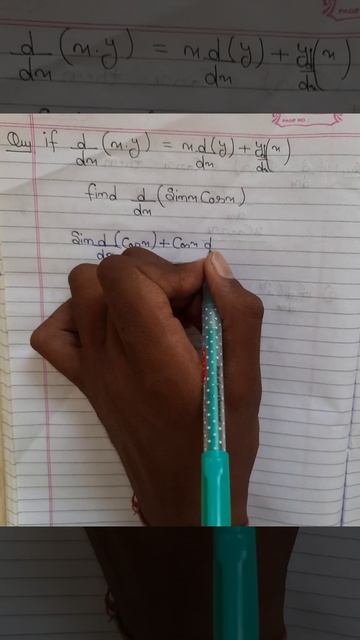 d/dx (x.y) = x d/dx (y) + y d/dx (x)
PAGE NO.:
Qu if d/dx (x.y) = x d/dx (y) + y d/dx (x)
find d/dx (sinx cosx)
sinx d/dx (cosx) + cosx d